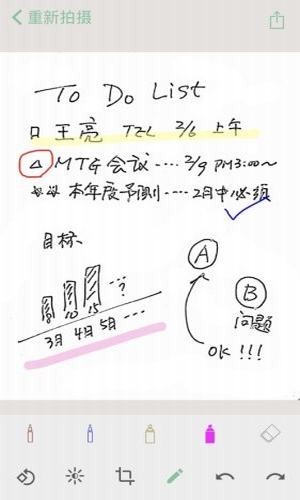 重新拍摄
To Do List
口 王亮 TEL 2/6 上午
△ MTG 会议 ---- 2/9 PM3:00~
本年度予测 ---- 2月中必须
目标
8 10 15 ... ?
3月 4月 5月 ---
A
B
问题
OK!!!